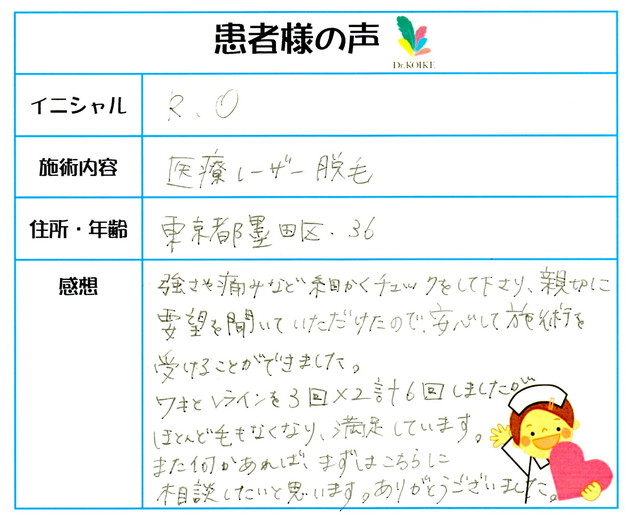 患者様の声
Dr.KOIKE
イニシャル
R.O
施術内容
医療レーザー脱毛
住所・年齢
東京都墨田区・36
感想
強さや痛みなど細かくチェックをして下さり、親切に
要望を聞いていただけたので、安心して施術を
受けることができました。
ワキとVラインを3回×2計6回しましたが
ほとんど毛もなくなり、満足しています。
また何かあれば、まずはこちらに
相談したいと思います。ありがとうございました。